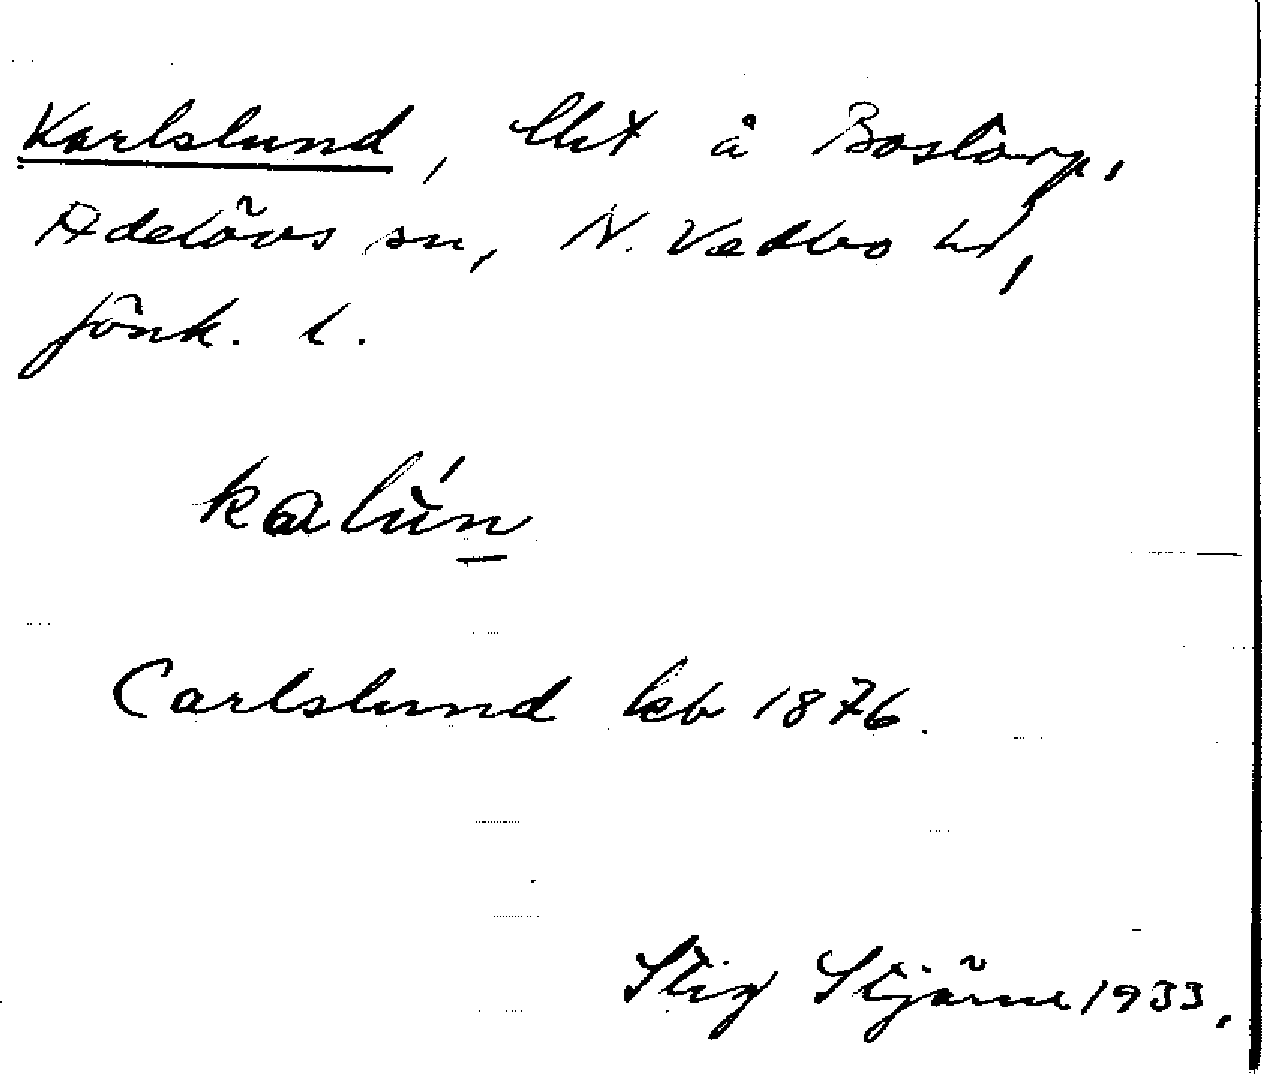 Karlslund, lht å Bostorp,
Adelövs sn, N. Vedbo hd,
Jönk. l.
kalùn
Carlslund kb 1876.
Stig Stjärne 1933.